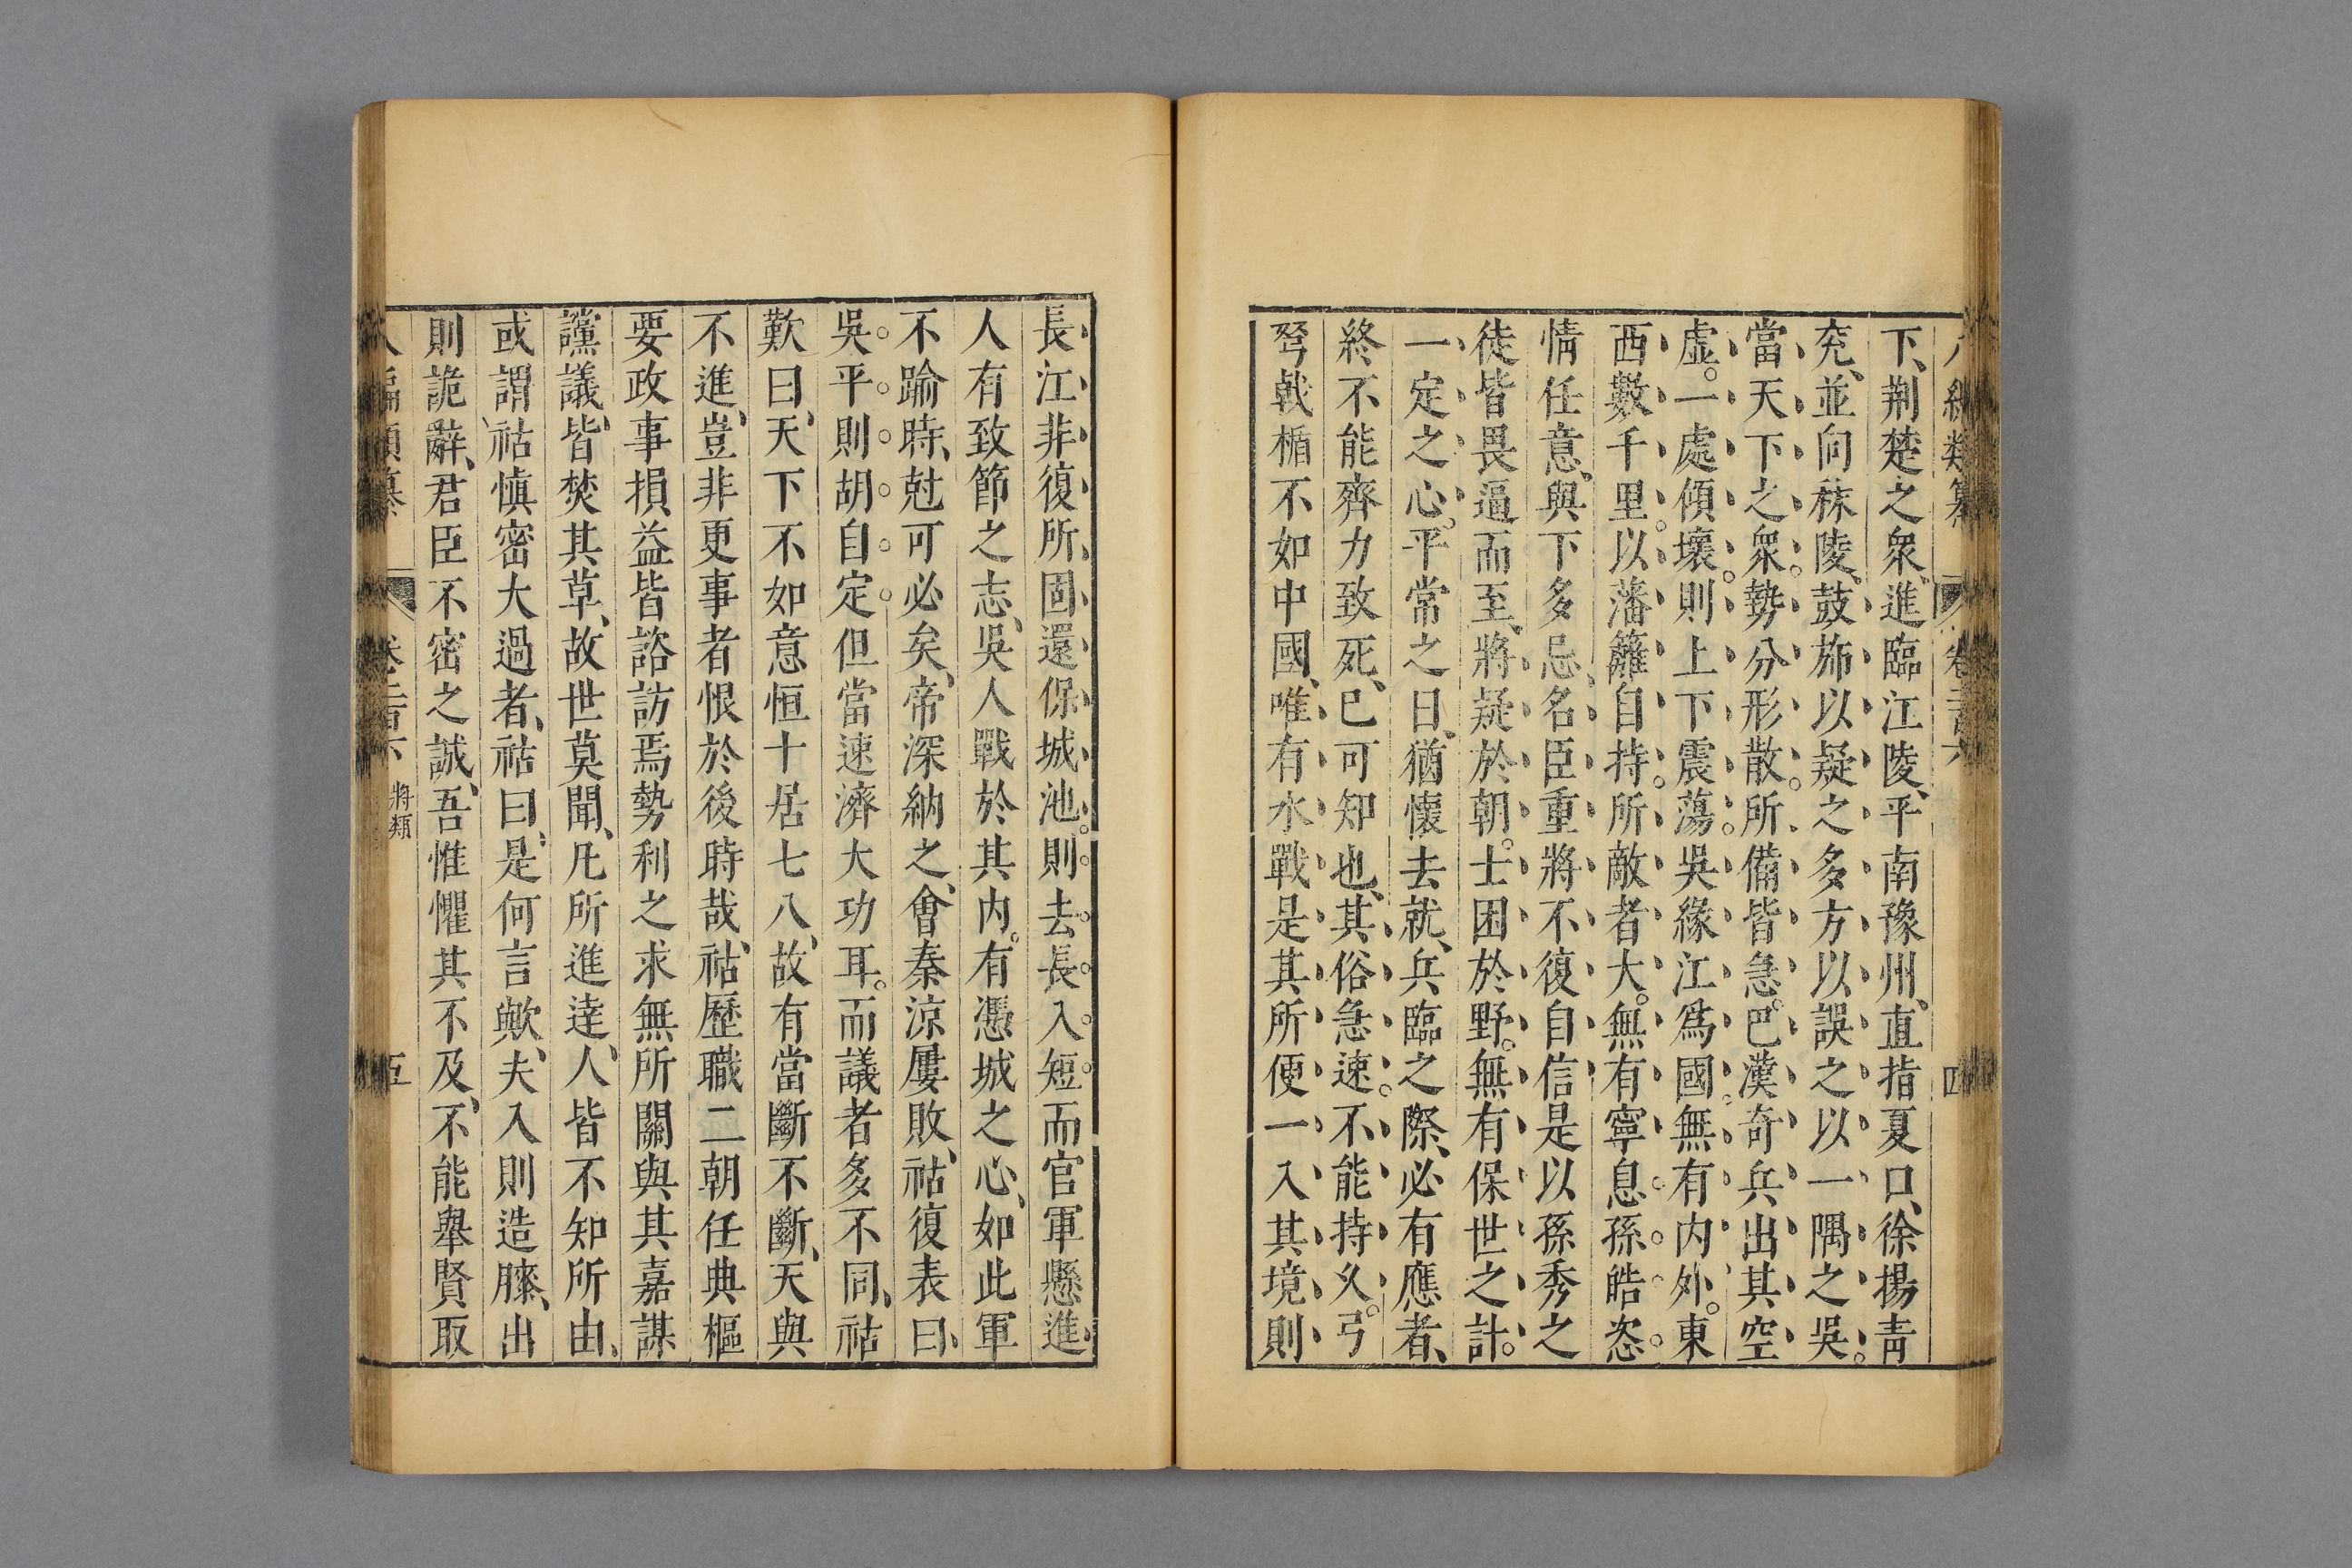 八編類纂 卷二百六 四
下、荆楚之衆、進臨江陵、平南豫州、直指夏口、徐揚靑
兖、並向秣陵、鼓斾以疑之多方以誤之以一隅之吳。
當天下之衆。勢分形散。所備皆急。巴漢奇兵出其空
虛。一處傾壞。則上下震蕩。吳緣江爲國。無有内外。東
西數千里。以藩籬自持。所敵者大。無有寧息。孫皓恣
情任意、與下多忌、名臣重將不復自信是以孫秀之
徒皆畏逼而至、將疑於朝。士困於野。無有保世之計。
一定之心。平常之日、猶懷去就、兵臨之際、必有應者、
終不能齊力致死、巳可知也、其俗急速。不能持久。弓
弩戟楯不如中國、唯有水戰是其所便一入其境則
長江非復所固還保城池。則去長入短而官軍懸進
人有致節之志、吳人戰於其内。有憑城之心、如此軍
不踰時、尅可必矣、帝深納之、會秦涼屢敗、祜復表曰、
吳平則胡自定但當速濟大功耳。而議者多不同、祜
歎曰、天下不如意恒十居七八、故有當斷不斷、天與
不進、豈非更事者恨於後時哉、祜歷職二朝任典樞
要政事損益皆諮訪焉勢利之求無所關與其嘉謀
讜議、皆焚其草、故世莫聞、凡所進達、人皆不知所由、
或謂祜愼密大過者、祜曰、是何言歟、夫入則造膝、出
則詭辭、君臣不密之誠、吾惟懼其不及、不能舉賢取
八編類纂 卷二百六 將類 五